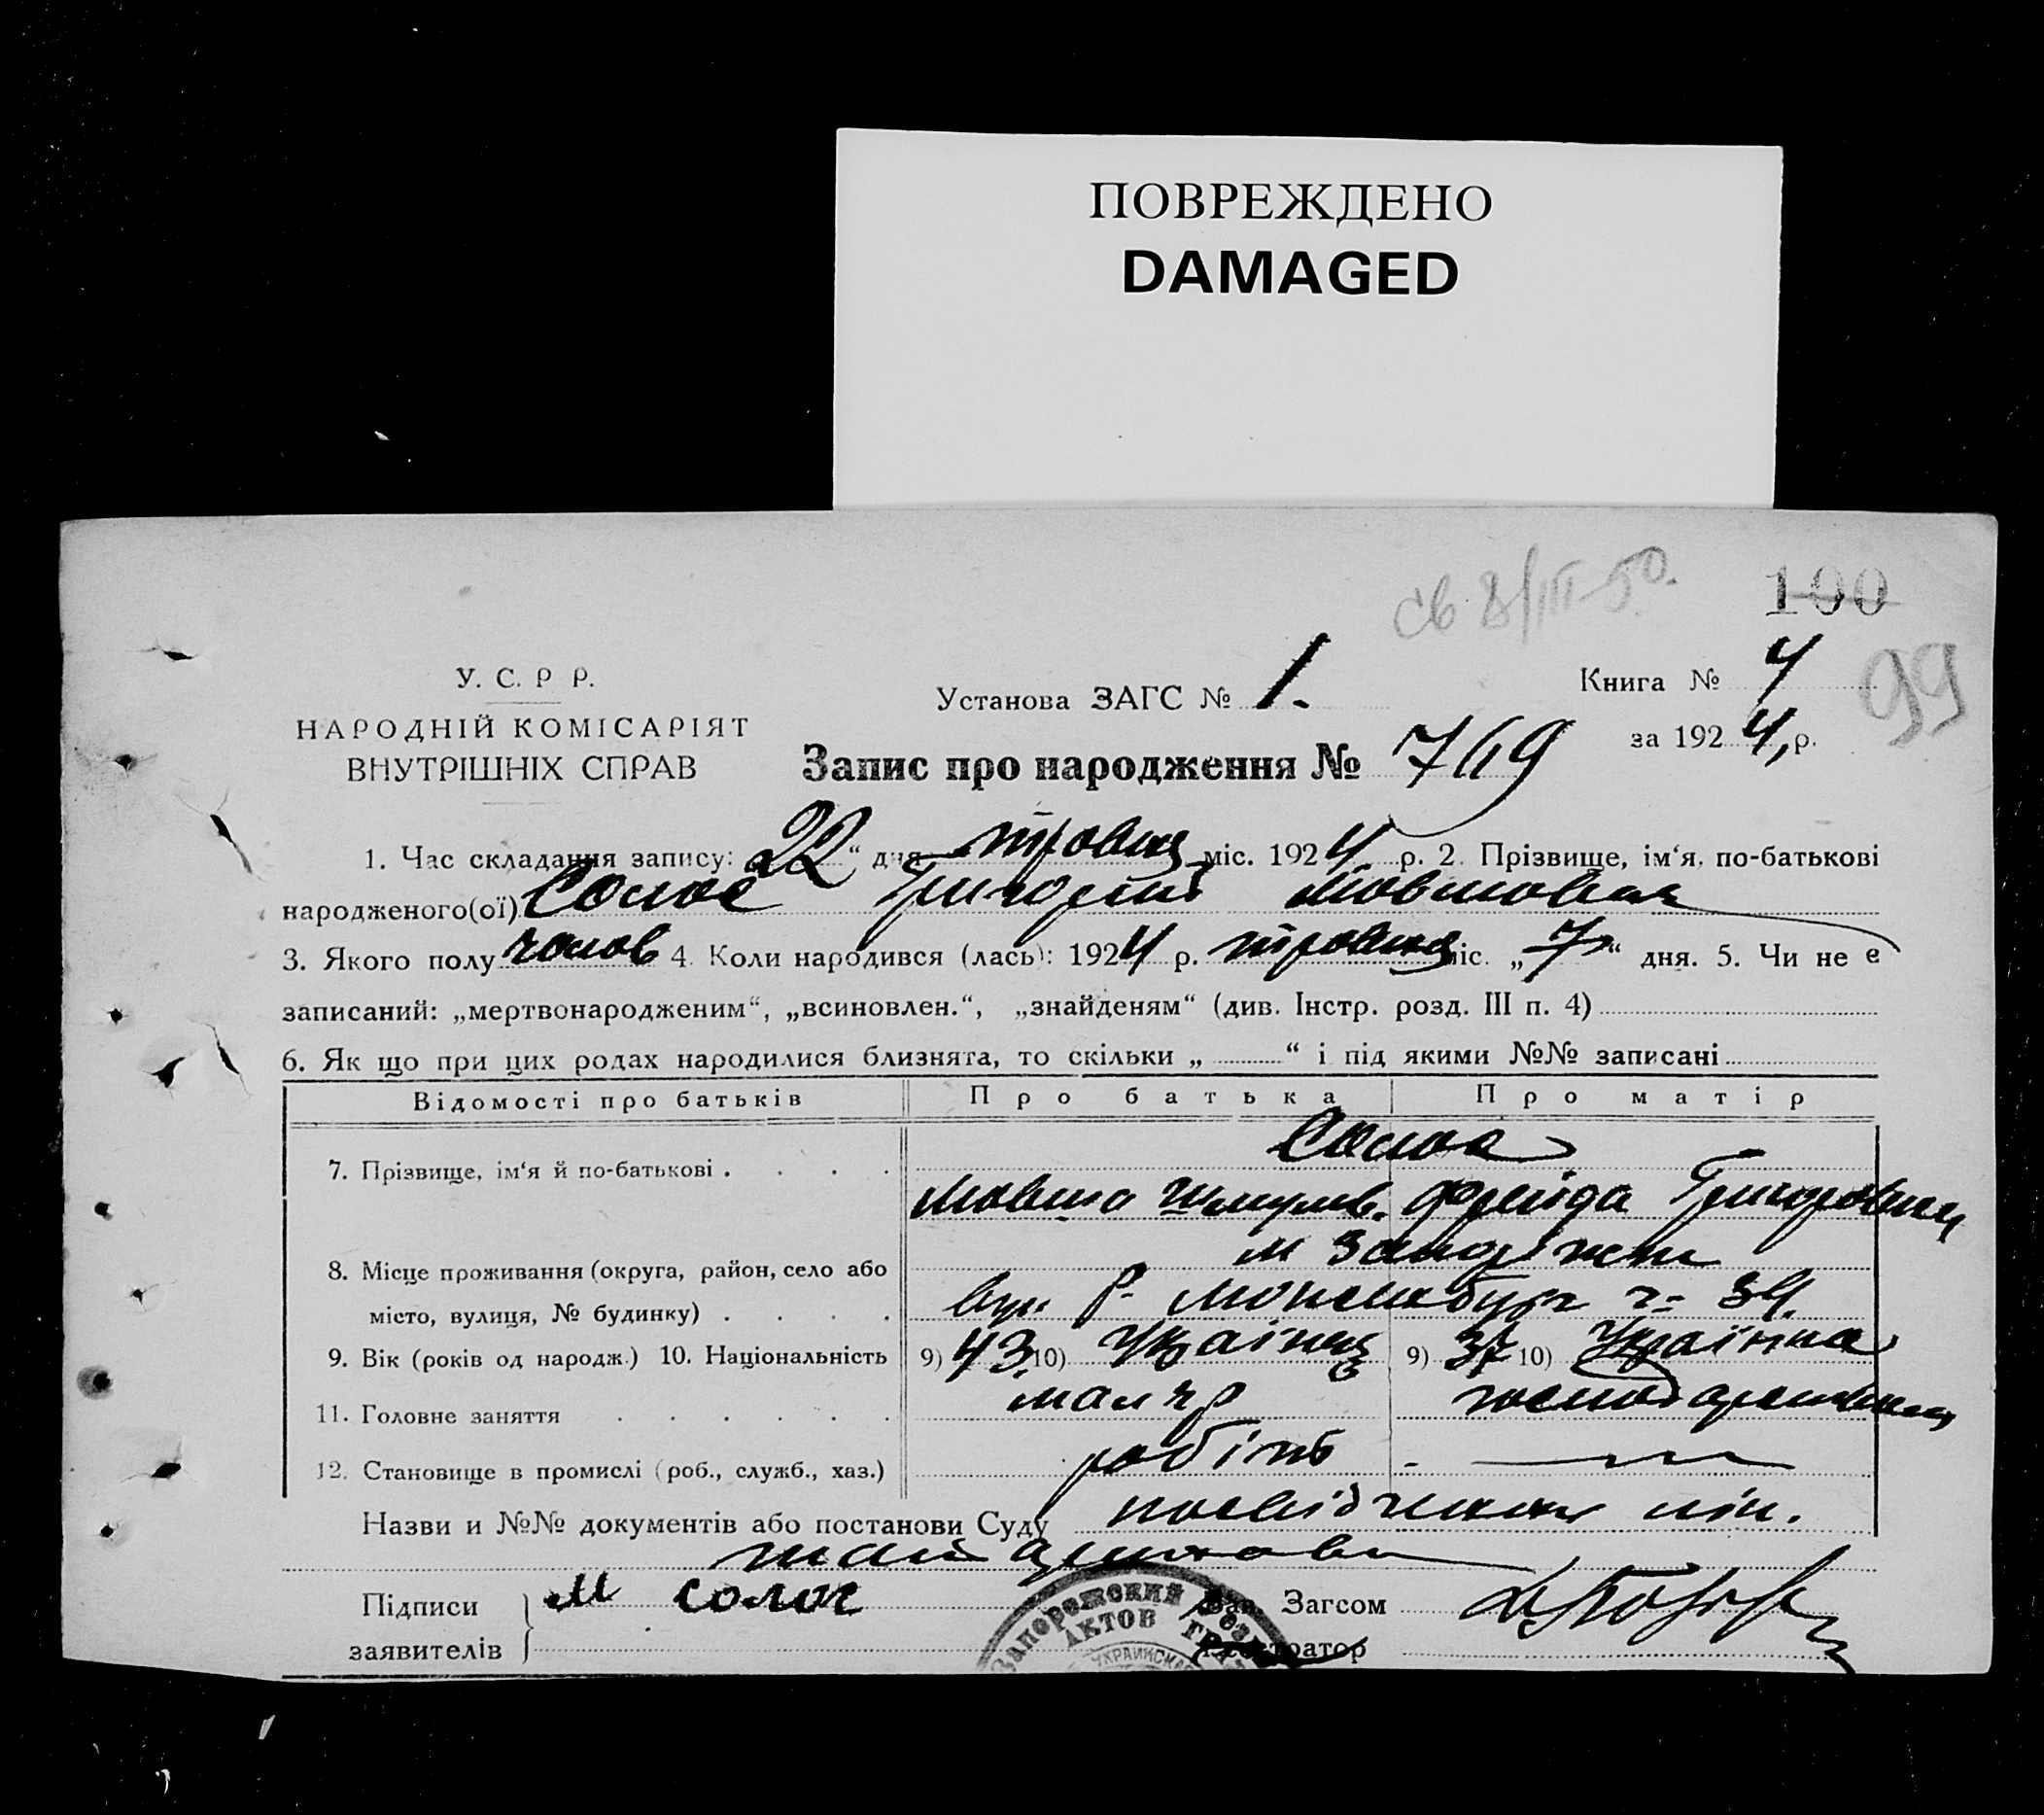 ПОВРЕЖДЕНО
DAMAGED
св 8/III-50.
100
99
У. С. Р Р.
НАРОДНІЙ КОМІСАРІЯТ
ВНУТРІШНІХ СПРАВ
Установа ЗАГС № 1.
Книга № 4
за 1924, р.
Запис про народження № 769
1. Час складання запису: 22 “ дня травня міс. 1924 р. 2. Прізвище, ім‘я, по-батькові
народженого(ої) Григорій Мовшовая
3. Якого полу чолов 4. Коли народився (лась): 1924 р. травня міс. „ 7 “ дня. 5. Чи не є
записаний: „мертвонародженим“, „всиновлен.“, „знайденям“ (див. Інстр. розд. III п. 4)
6. Як що при цих родах народилися близнята, то скільки „ “ і під якими №№ записані
Відомості про батьків Про батька Про матір
7. Прізвище, ім‘я й по-батькові
Мовша Шмулев. Фрейда Григоровна
8. Місце проживання (округа, район, село або м Запоріжжя
місто, вулиця, № будинку) вул. Р. ч. 34.
9. Вік (років од народж.) 10. Національність 9) 43 10) Українец 9) 37 10) Українка
11. Головне заняття маляр господарювання
12. Становище в промислі (роб., служб., хаз.) робітн
Назви и №№ документів або постанови Суду посвідчення
Підписи М солос
заявителів
Зав. Загсом
Реєстратор
Запорожский
Актов Граж
Украинская